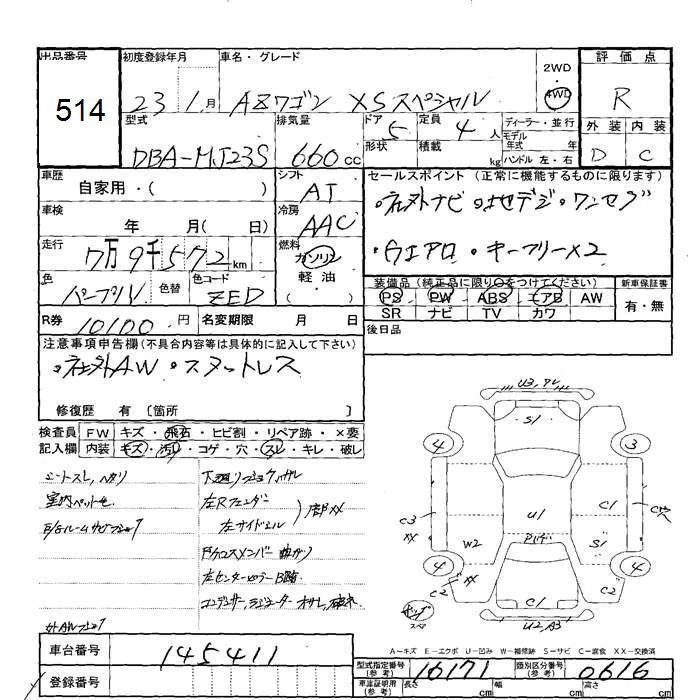 出品番号 初度登録年月 車名・グレード 2WD 4WD 評価点
514 23 1月 AZワゴン XSスペシャル R
型式 排気量 ドア 5 定員 4人 ディーラー・並行 外装 内装
DBA-MJ23S 660cc 形状 積載 kg モデル年式 年 ハンドル 左・右 D C
車歴 自家用・( ) シフト AT セールスポイント (正常に機能するものに限ります)
車検 年 月( 日) 冷房 AAC ・社外ナビ ・地デジ・ワンセグ
走行 7万9千572km 燃料 ガソリン 軽油 ( ) ・ウエアロ ・キーフリー×2
色 パープルV 色替 色コード ZED 装備品 (純正品に限り○をつけてください) 新車保証書
PS PW ABS エアB AW 有・無
SR ナビ TV カワ
R券 10100円 名変期限 月 日 後日品
注意事項申告欄 (不具合内容等は具体的に記入して下さい)
・社外AW ・スタットレス
修復歴 有 〔箇所 〕
検査員 FW キズ・飛石・ヒビ割・リペア跡・×要
記入欄 内装 キズ・汚れ・コゲ・穴・スレ・キレ・破レ
シートスレ、ヘタリ
室内ペット毛
左Rフェンダー
左サイドシル
Fクロスメンバー 曲ガリ
左センターピラーB錆
U3,
S1
4 3
C3 XX U1 C1
W2 S1
4 4
C2 XX C2
C1
U2,A3
A−キズ E−エクボ U−凹み W−補修跡 S−サビ C−腐食 XX−交換済
車台番号 145411
登録番号
型式指定番号 (参考) 16171 類別区分番号 (参考) 0616
車庫証明用 (参考) 長さ cm 幅 cm 高さ cm